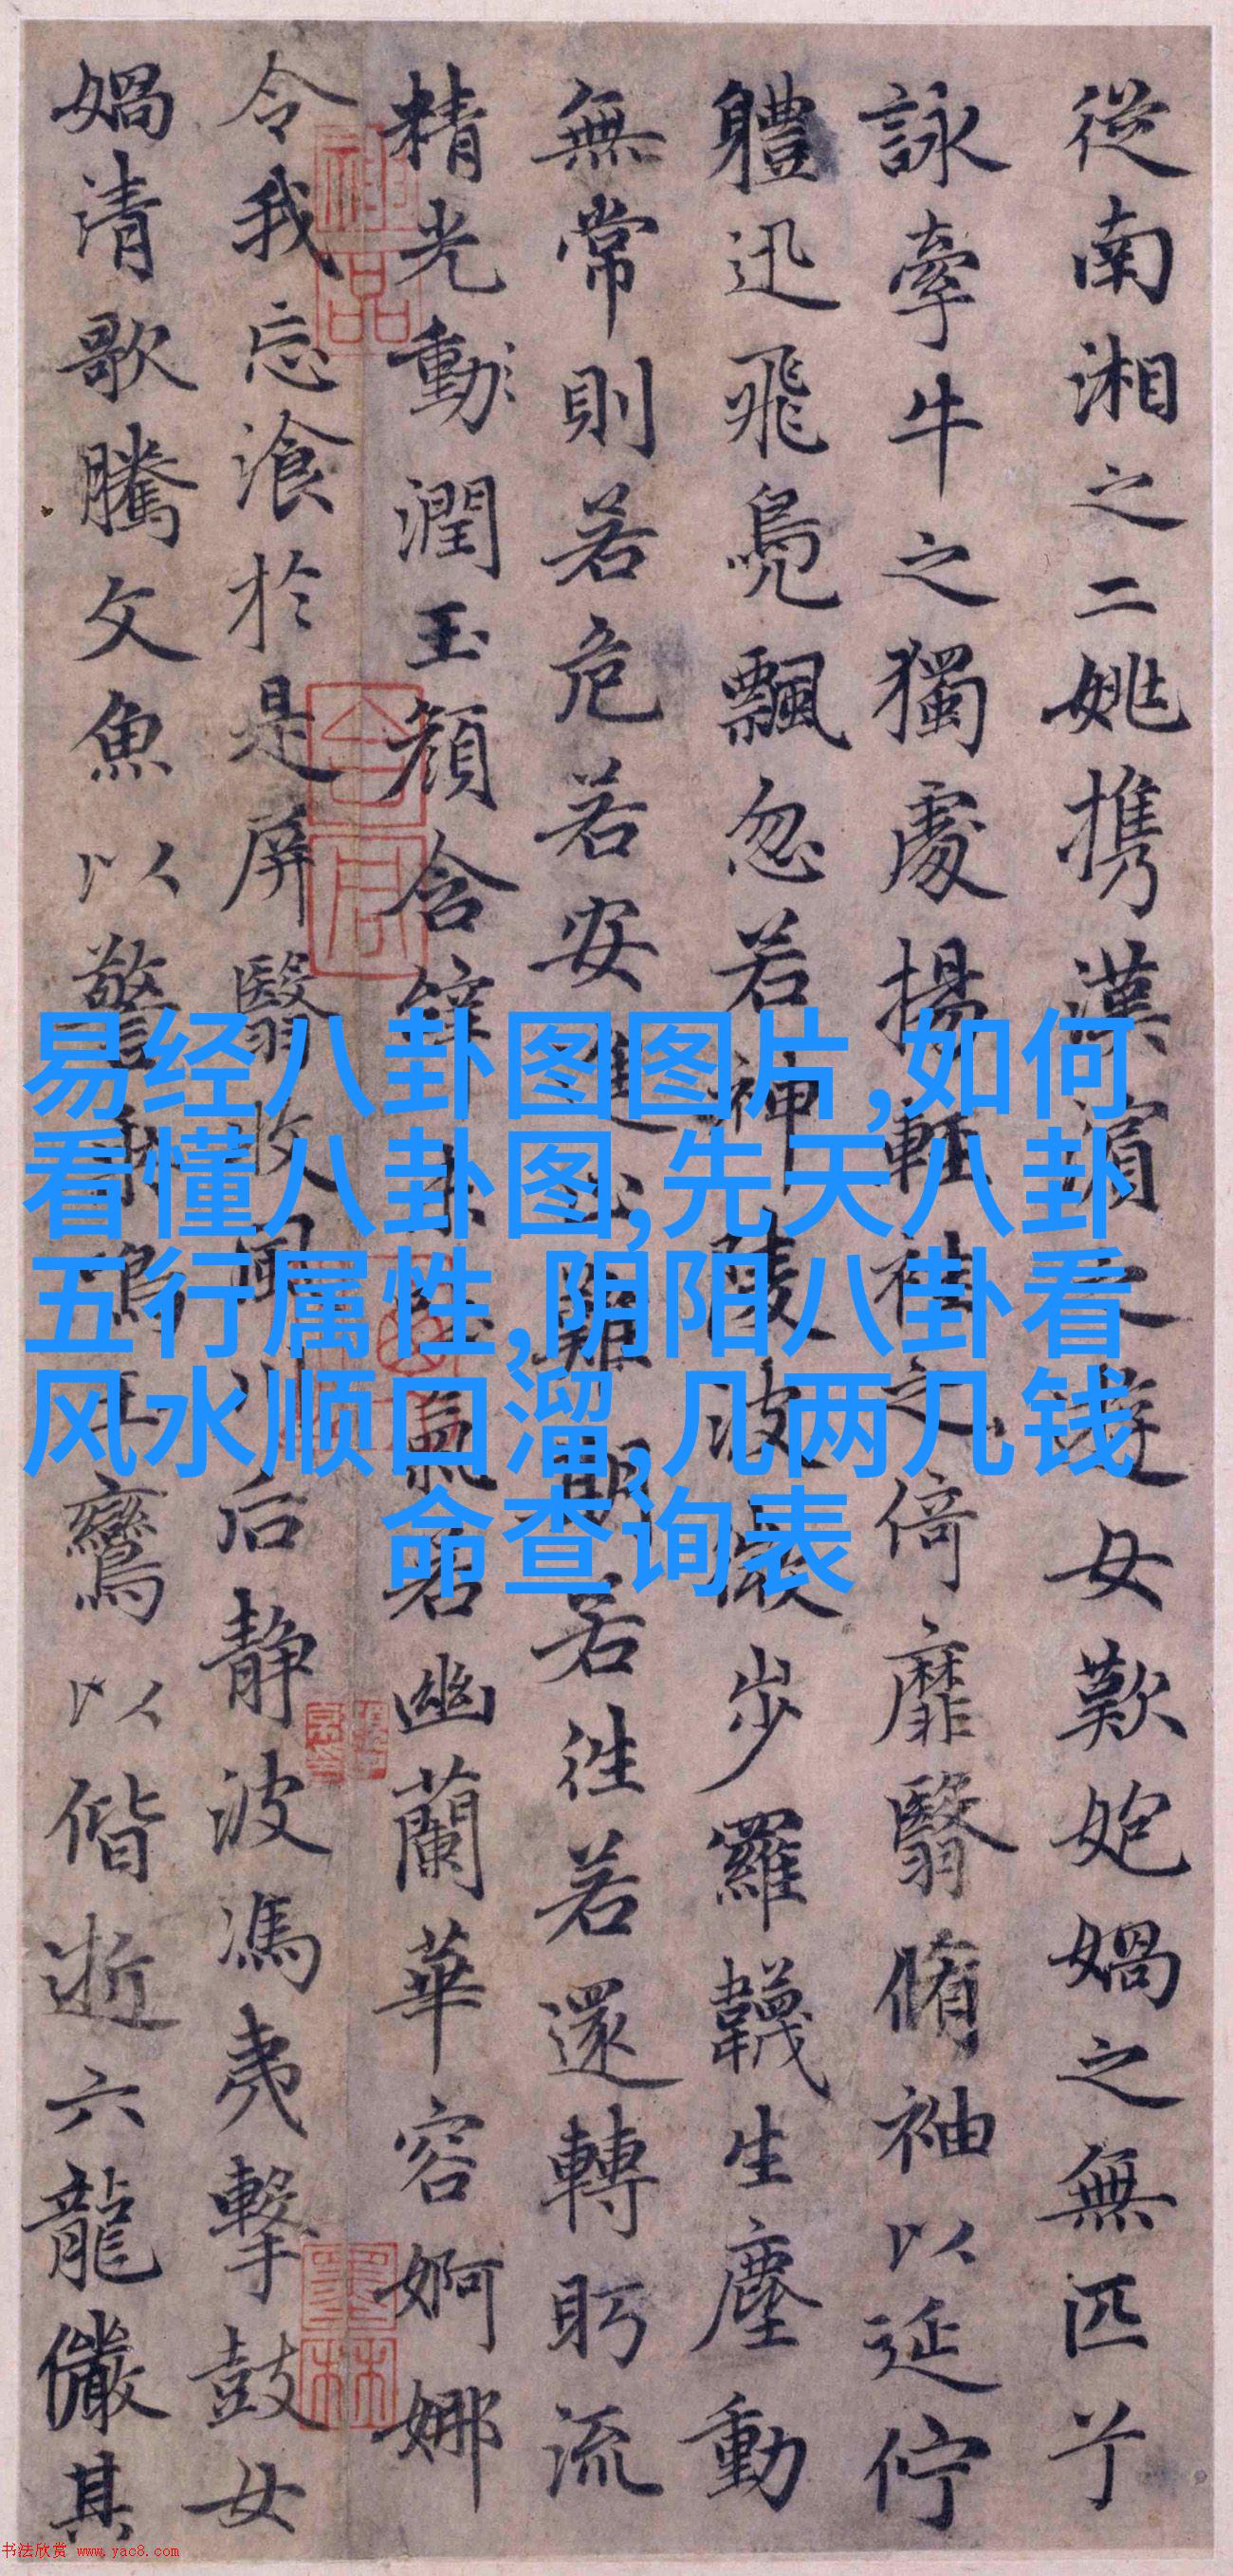 從南湘之二姚携漢濱之遊女歎妑媧之無匹兮
詠牽牛之獨處揚輕袿之倚靡翳脩袖以延佇
軆迅飛鳧飄忽若神陵波微步羅韈生塵動
無常則若危若安進止難期若往若還轉眄流
精光動潤玉顏含辭未吐氣若幽蘭華容婀娜
令我忘飡於是屏翳收風川后静波馮夷擊鼓女
媧清歌騰文魚以警乘鳴玉鸞以偕逝六龍儼其
神品
墨林
易经八卦图图片,如何
看懂八卦图,先天八卦
五行属性,阴阳八卦看
风水顺口溜,几两几钱
命查询表
书法欣赏 www.yac8.com